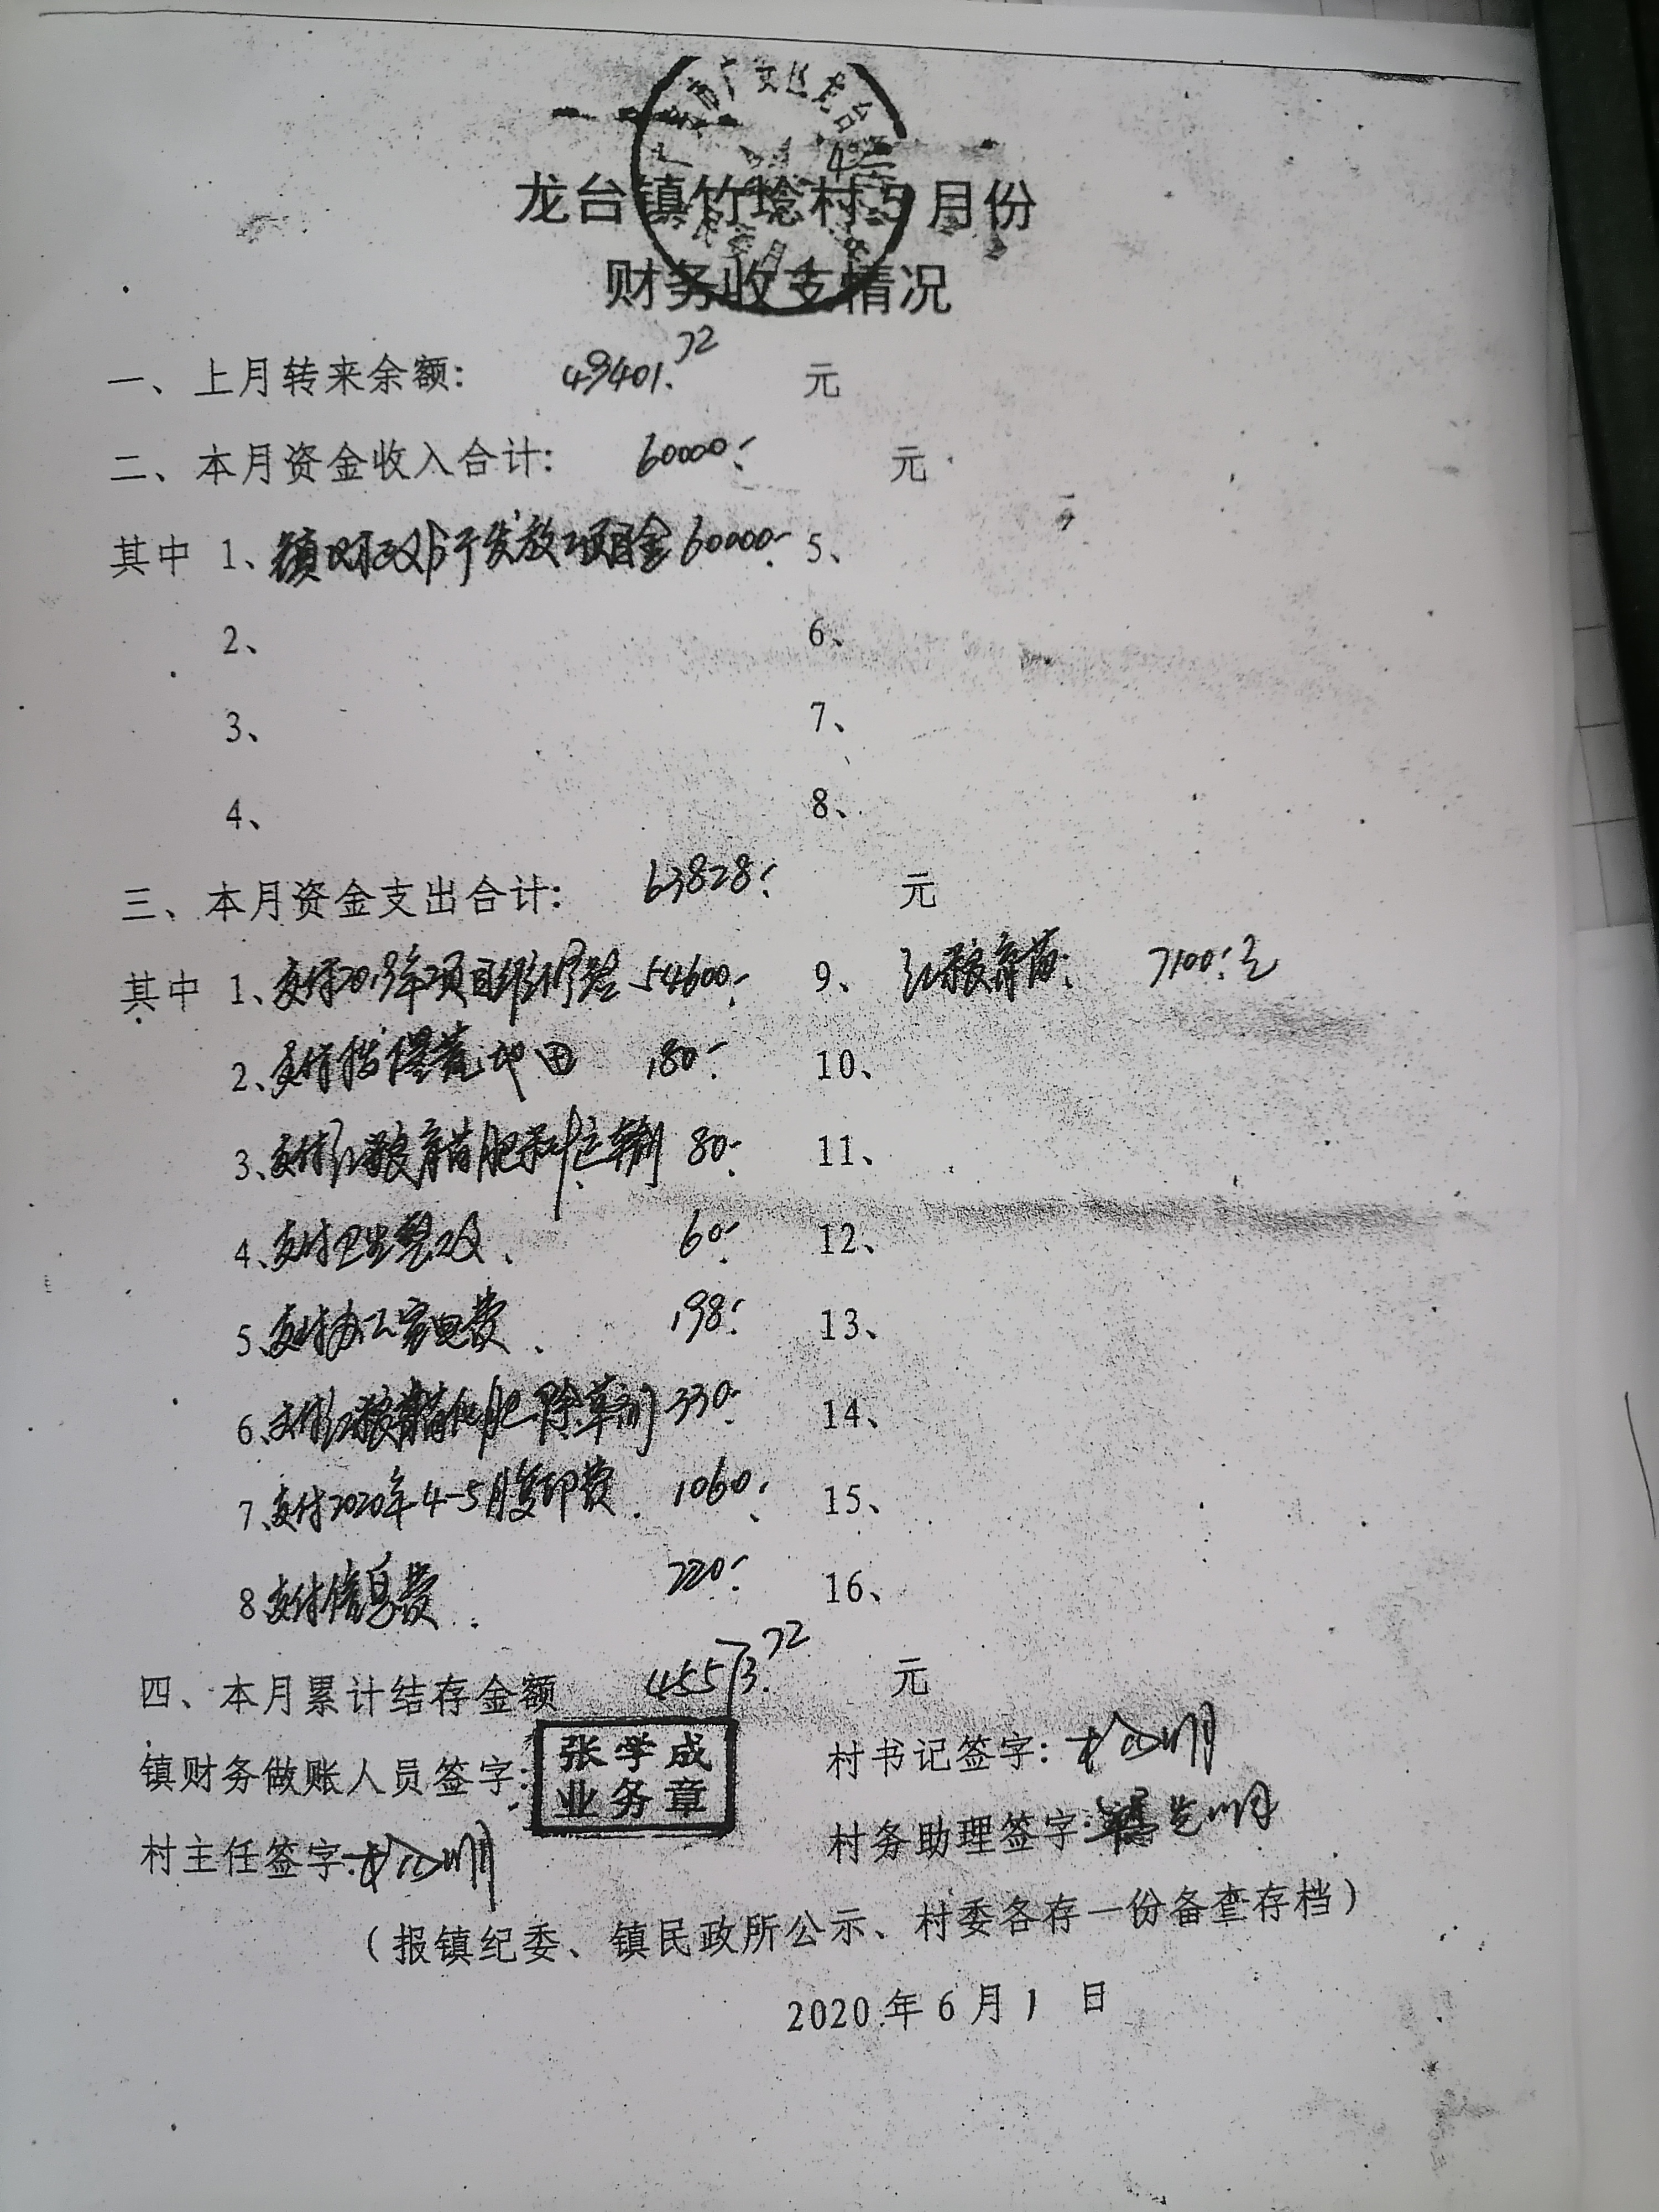 龙台镇竹埝村5月份
财务收支情况
一、上月转来余额: 49401.72 元
二、本月资金收入合计: 60000.- 元
其中 1、镇财政所发放项目金 60000.- 5、
2、 6、
3、 7、
4、 8、
三、本月资金支出合计: 63828.- 元
其中 1、支付2019年项目 54600.- 9、红椒育苗: 7100.-元
2、支付 荒地田 180.- 10、
3、支付红椒育苗肥料运输 80.- 11、
4、支付卫生整改 60.- 12、
5、支付办公室电费 198.- 13、
6、支付红椒育苗化肥除草剂 330.- 14、
7、支付2020年4-5月复印费 1060.- 15、
8支付信息费 220.- 16、
四、本月累计结存金额 45573.72 元
镇财务做账人员签字: 张学成 业务章 村书记签字:
村主任签字: 村务助理签字:
(报镇纪委、镇民政所公示、村委各存一份备查存档)
2020年6月1日